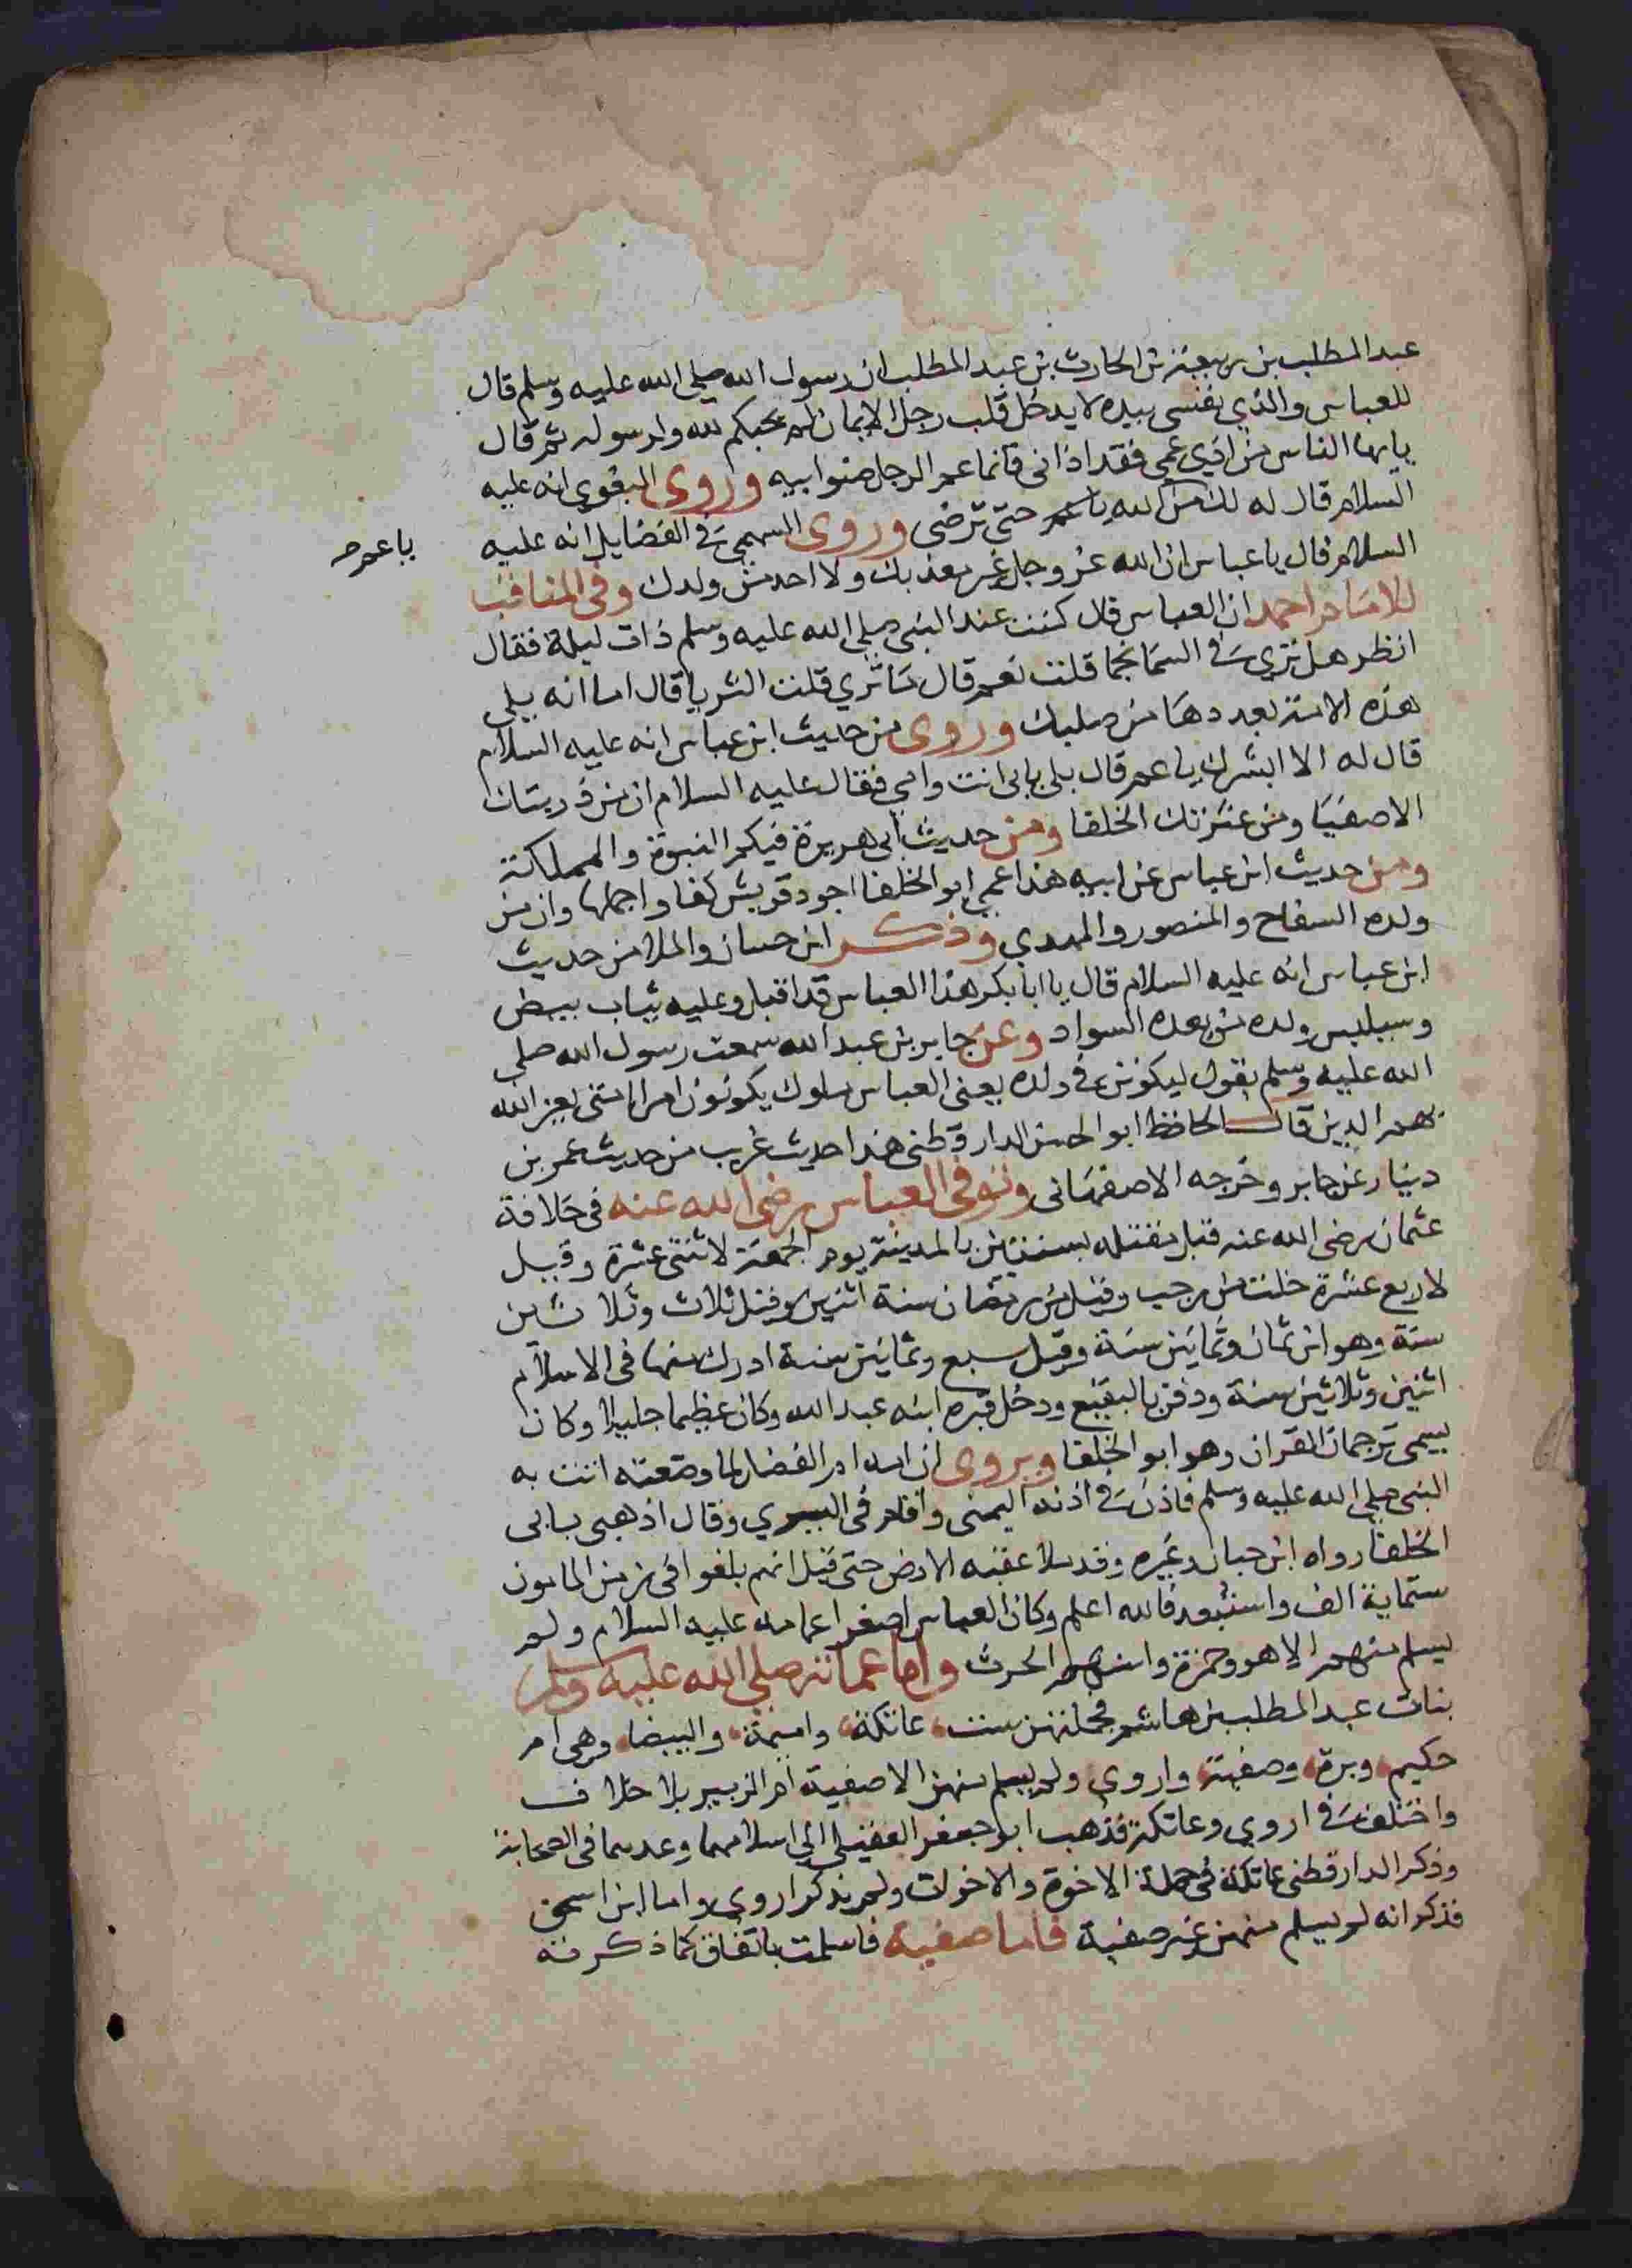 عبد المطلب بن ربيعة بن الحارث بن عبد المطلب ان رسول الله صلى الله عليه وسلم قال
للعباس والذي نفسي بيده لا يدخل قلب رجل الايمان لم يحبكم لله ولرسوله ثم قال
يايها الناس من اذي عمي فقد اذاني فانما عم الرجل صنو ابيه وروى البغوي انه عليه
السلام قال له لك من الله يا عم حتى ترضى وروى السهمي في الفضايل انه عليه
يا عم صح
السلام قال يا عباس ان الله عز وجل غير معذبك ولا احد من ولدك وفي المناقب
للامام احمد ان العباس قال كنت عند النبي صلى الله عليه وسلم ذات ليلة فقال
انظر هل تري في السما نجما قلت نعم قال ما تري قلت الثريا قال اما انه يلي
هذه الامة بعددها من صلبك وروى من حديث ابن عباس انه عليه السلام
قال له الا ابشرك يا عم قال بلى بابي انت وامي فقال عليه السلام ان من ذريتك
الاصفيا ومن عترتك الخلفا ومن حديث ابي هريرة فيكم النبوة والمملكة
ومن حديث ابن عباس عن ابيه هذا عمي ابو الخلفا اجود قريش كفا واجملها وان من
ولده السفاح والمنصور والمهدي وذكر ابن حسان والملا من حديث
ابن عباس انه عليه السلام قال يا ابا بكر هذا العباس قد اقبل وعليه ثياب بيض
وسيلبس ولده من بعده السواد وعن جابر بن عبد الله سمعت رسول الله صلى
الله عليه وسلم يقول ليكونن في ولده يعني العباس ملوك يكونون امرا امتي يعز الله
بهم الدين قال الحافظ ابو الحسن الدارقطني هذا حديث غريب من حديث عمر بن
دينار عن جابر وخرجه الاصفهاني وتوفي العباس رضي الله عنه في خلافة
عثمان رضي الله عنه قبل مقتله بسنتين بالمدينة يوم الجمعة لاثنتي عشرة وقيل
لاربع عشرة خلت من رجب وقيل من رمضان سنة اثنين وقيل ثلاث وثلاثين
سنة وهو ابن ثمان وثمانين سنة وقيل سبع وثمانين سنة ادرك منها في الاسلام
اثنين وثلاثين سنة ودفن بالبقيع ودخل قبره ابنه عبد الله وكان عظيما جليلا وكان
يسمى ترجمان القران وهو ابو الخلفا ويروى ان امه ام الفضل لما وضعته اتت به
النبي صلى الله عليه وسلم فاذن في اذنه اليمنى واقام في اليسري وقال اذهبي بابي
الخلفا رواه ابن حبان وغيره وقد ملا عقبه الارض حتى قيل انهم بلغوا في زمن المامون
ستماية الف واستبعد فالله اعلم وكان العباس اصغر اعمامه عليه السلام ولم
يسلم منهم الا هو وحمزة واسنهم الحرث واما عماته صلى الله عليه وسلم
بنات عبد المطلب بن هاشم فجملتهن ست عاتكة واميمة والبيضا وهي ام
حكيم وبرة وصفية واروى ولم يسلم منهن الا صفية ام الزبير بلا خلاف
واختلف في اروي وعاتكة فذهب ابو جعفر العقيلي الي اسلامهما وعدهما في الصحابة
وذكر الدارقطني عاتكة في جملة الاخوة والاخوات ولم يذكر اروى واما ابن اسحق
فذكر انه لم يسلم منهن غير صفية فاما صفية فاسلمت باتفاق كما ذكرته